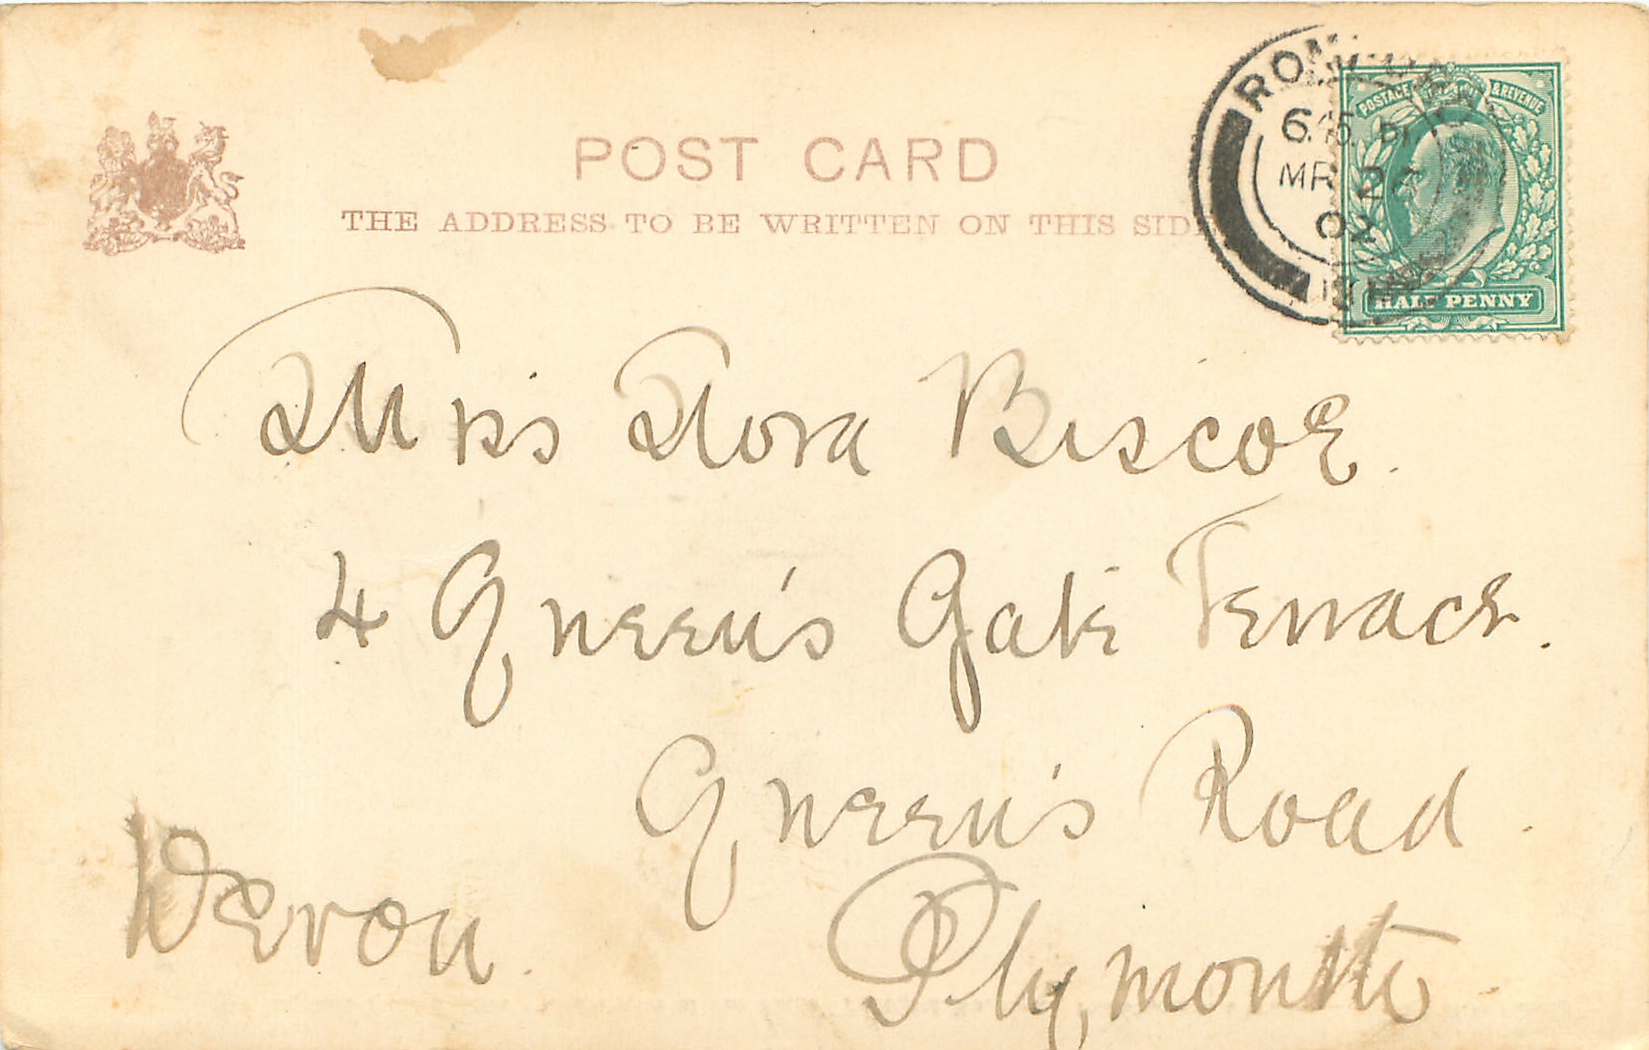 POST CARD
THE ADDRESS TO BE WRITTEN ON THIS SIDE
POSTAGE & REVENUE
6.45 P
MR 2
02
HALF PENNY
Miss Flora Biscoe.
4 Queen's Gate Terrace.
Queen's Road.
Plymouth.
Devon.